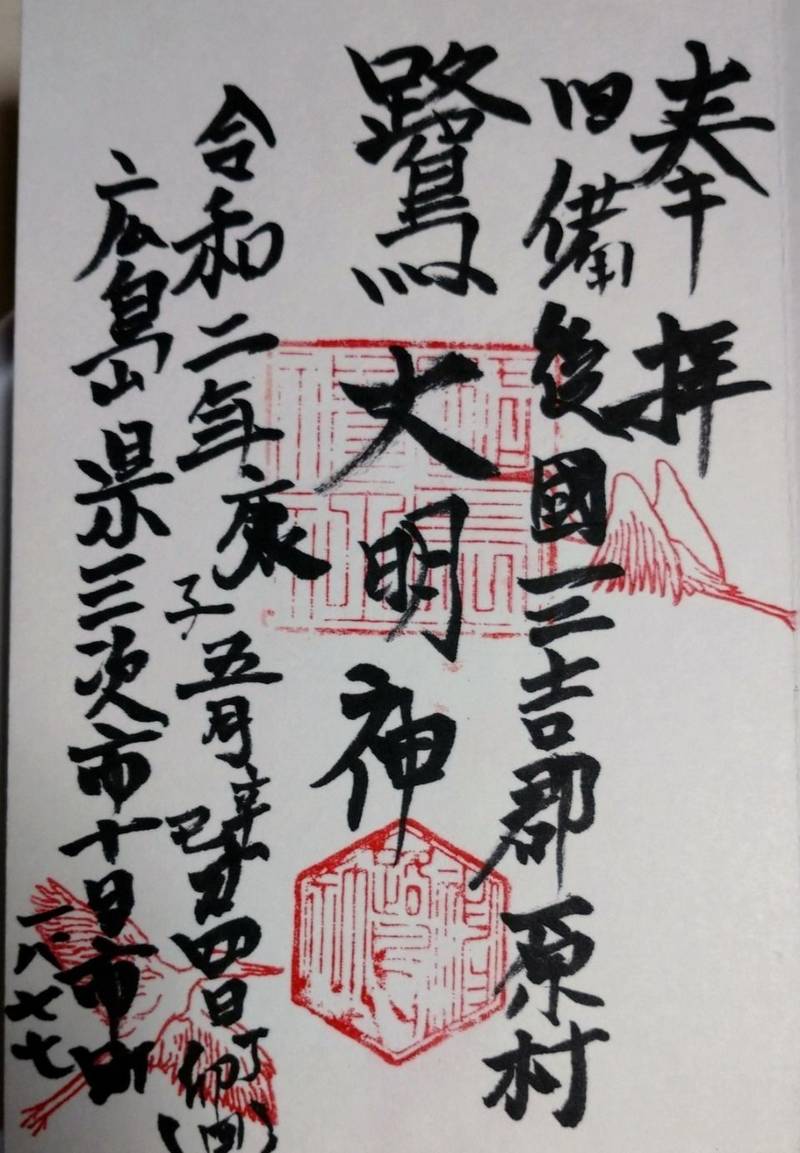 奉拝
旧備後國三吉郡原村
鷺大明神
令和二年庚子五月辛巳廿四日丁卯
広島県三次市十日市町
一八七七